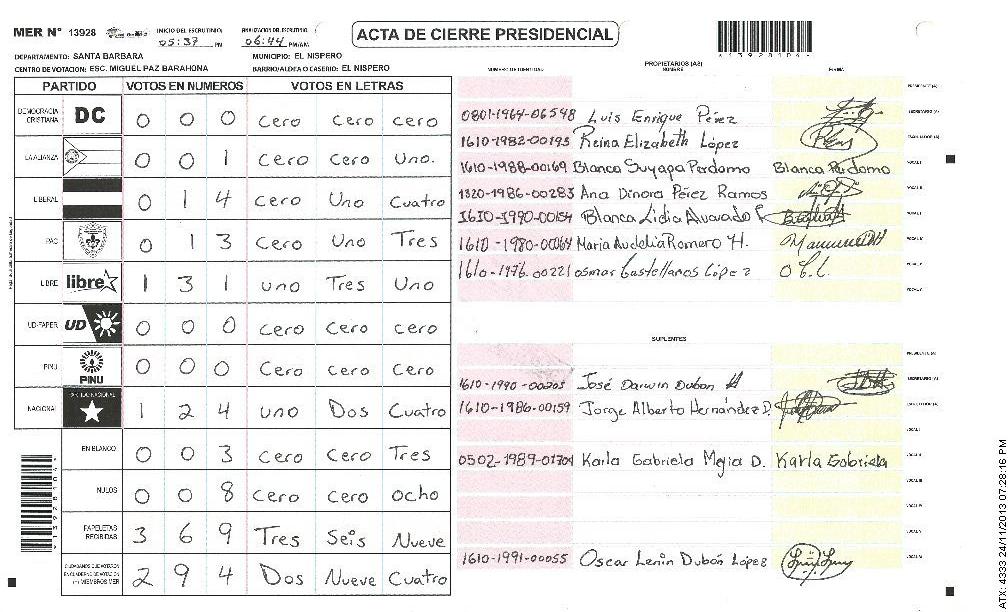 MER N° 13928 INICIO DEL ESCRUTINIO: 05:37 PM FINALIZACION DEL ESCRUTINIO: 06:44 PM/AM
ACTA DE CIERRE PRESIDENCIAL
DEPARTAMENTO: SANTA BARBARA MUNICIPIO: EL NISPERO
CENTRO DE VOTACION: ESC. MIGUEL PAZ BARAHONA BARRIO/ALDEA O CASERIO: EL NISPERO
PARTIDO VOTOS EN NUMEROS VOTOS EN LETRAS
DEMOCRACIA CRISTIANA DC 0 0 0 Cero Cero Cero
LA ALIANZA 0 0 1 Cero Cero Uno.
LIBERAL 0 1 4 Cero Uno Cuatro
PAC 0 1 3 Cero Uno Tres
LIBRE libre 1 3 1 uno Tres Uno
UD-FAPER UD 0 0 0 Cero Cero cero
PINU PINU 0 0 0 Cero Cero Cero
NACIONAL 1 2 4 uno Dos Cuatro
EN BLANCO 0 0 3 Cero Cero Tres
NULOS 0 0 8 Cero cero ocho
PAPELETAS RECIBIDAS 3 6 9 Tres Seis Nueve
CIUDADANOS QUE VOTARON EN CUADERNO DE VOTACION MIEMBROS MER 2 9 4 Dos Nueve Cuatro
PROPIETARIOS (AS)
NUMERO DE IDENTIDAD NOMBRE FIRMA
PRESIDENTE (A)
0801-1964-06548 Luis Enrique Pérez SECRETARIO (A)
1610-1982-00195 Reina Elizabeth López ESCRUTADOR (A)
1610-1988-00169 Blanca Suyapa Perdomo Blanca Perdomo VOCAL I
1320-1986-00283 Ana Dinora Pérez Ramos VOCAL II
1610-1990-00154 Blanca Lidia Alvarado
1610-1980-00064 Maria Audelia Romero H.
1610-1976-00221 osmar Castellanos López O C.L.
SUPLENTES
PRESIDENTE (A)
1610-1990-00205 José Darwin Dubón H SECRETARIO (A)
1610-1986-00159 Jorge Alberto Hernández D. ESCRUTADOR (A)
VOCAL I
0502-1989-01704 Karla Gabriela Mejia D. Karla Gabriela VOCAL II
VOCAL III
1610-1991-00055 Oscar Lenin Dubón López
ATX: 4333 24/11/2013 07:28:16 PM